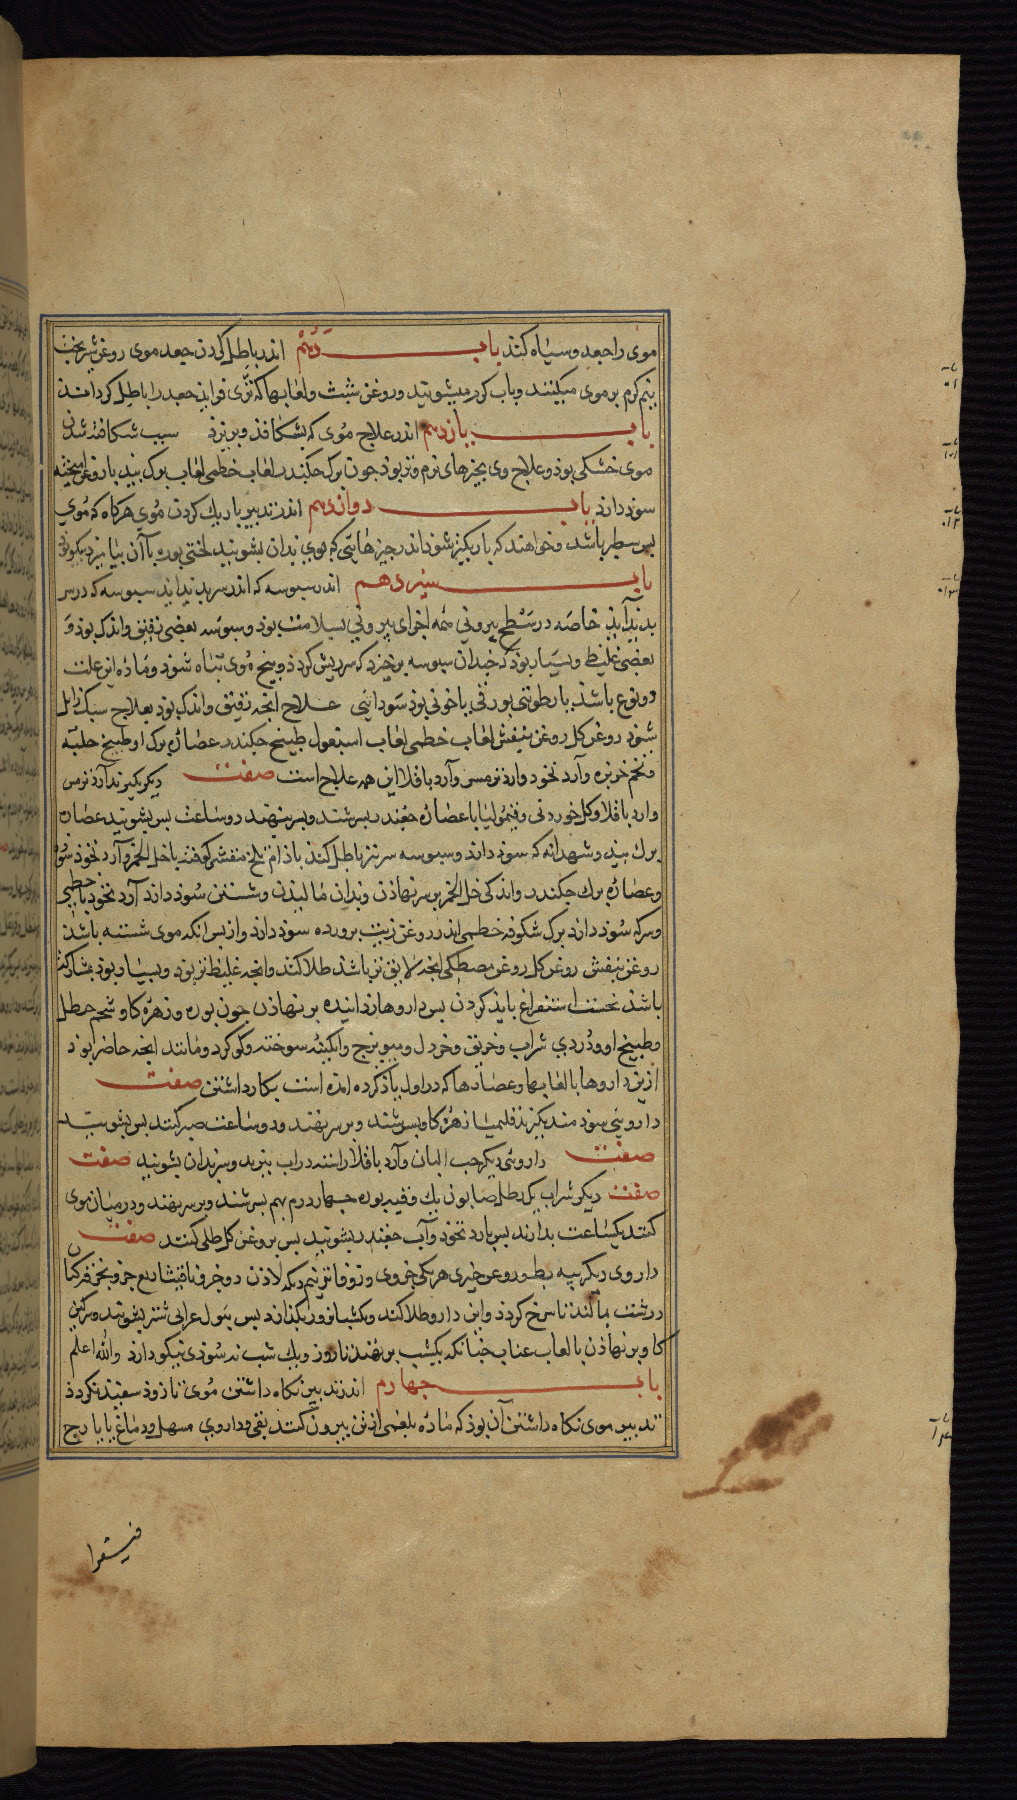 موی را جعد و سیاه کند باب دهم اندر باطل کردن جعد موی روغن شیربخت
نیم کرم بر موی میکنند و باب کرم میشویند و روغن شبت و لعابها که تری فزاید جعد را باطل کردانند
باب یازدهم اندر علاج موی که بشکافذ و بریزد سبب شکافته شدن
موی خشکی بوذ و علاج وی بچیزهای نرم و تر بوذ جون برک جکندر لعاب خطمی لعاب برک بید با روغن امیخته
سوذ دارذ باب دوازدهم اندر تدبیر باریک کردن موی هرکاه که موی
بس سطبر باشد و خواهند که باریکتر شوذ اندر چیزهایی که موی بدان بشویند لختی بوره با آن بیامیزد نیکو بود
باب سیزدهم اندر سبوسه که اندر سر بدید اید سبوسه که در سر
بدید آیذ خاصه در سطح بیرونی همه اجزای بیرونی بسلامت بوذ و سبوسه بعضی رقیق و اندک بوذ و
بعضی غلیظ و بسیار بوذ که جندان سبوسه برخیزد که سر ریش کردذ و بیخ موی تباه شوذ و ماده این علت
دو نوع باشذ یا رطوبتی بورقی یا خونی بوذ سودایی علاج انجه رقیق و اندک بوذ بعلاج سبک زایل
شوذ روغن کل روغن بنفش لعاب خطمی لعاب اسبغول طبیخ جکندر عصاره برک او طبیخ حلبه
و تخم خربزه و آرد نخود و ارد ترمس و آرد باقلا این همه علاج است صفت دیکر بکیرند آرد ترمس
و ارد باقلا و کل خوردنی و قیمولیا با عصاره جغندر بسرشند و بر سر نهند دو ساعت بس بشویند عصاره
برک بید و شهدانه که سوذ داند و سبوسه سر نیز باطل کند باذام تلخ منقشر کوفته با خل الخمر و آرد نخوذ سود
و عصاره برک جکندر و اندکی خل الخمر بر سر نهاذن و بدان مالیذن و شستن سوذ دارذ آرد نخود با خطمی
و سرکه سوذ دارد برک شکوفه خطمی اندر روغن زیت برورده سوذ دارد و از بس انکه موی شسته باشذ
روغن بنفش روغن کل روغن مصطکی انجه لایق تر باشذ طلا کند و انجه غلیظ تر بوذ و بسیار بوذ بمشارکت
باشذ نخست استفراغ بایذ کردن بس داروها زداینده بر نهاذن جون بوره و زهره کاو شحم حنظل
و طبیخ او و دردی شراب و خربق و خردل و میویزج و ابکینه سوخته و کوکرد و مانند انجه حاضر بوذ
ازین داروها با لعابها و عصارتها که در اول یاذ کرده امده است بکار داشتن صفت
دارویی سود مند بکیرند قلیمیا زهره کاو بسرشند و بر سر نهند و دو ساعت صبر کنند بس بشویند
صفت داروئی دیکر حب البان و آرد باقلا راسته در اب بپزند و سر بدان بشویند صفت
صفت دیکر شراب یک رطل صابون یک وقیه بوره جهار درم بهم بسرشند و بر سر نهند و در میان موی
کنند یکساعت بدارند بس بارد نخود و آب جغندر بشویند بس بروغن کل طلی کنند صفت
داروی دیکر بیه بط و روغن خیری هر یکی جزوی و زوفا تر نیم دیکه لاذن دو جزو
این دارو طلا کند و یکشبانروز بکذارد بس ببول اعرابی شتر بشویند و سرکین
کاو بر نهاذن با لعاب عناب جنانکه یکشب بر نهند تا روز و یک شب نه سوذی نیکو دارد والله اعلم
باب جهارم اندر تدبیر نکاه داشتن موی تا زوذ سفید نکردذ
تدبیر موی نکاه داشتن آن بوذ که ماده بلغمی از تن بیرون کند بقی و داروی مسهل و دماغ را بایارج
فیقرا